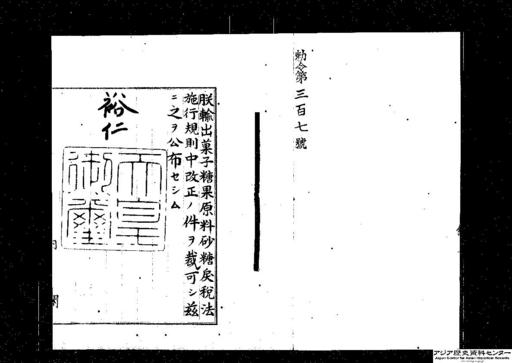 勅令第三百七號
朕輸出菓子糖果原料砂糖戻税法
施行規則中改正ノ件ヲ裁可シ茲
ニ之ヲ公布セシム
裕仁
天皇
御璽
内閣
アジア歴史資料センター
Japan Center for Asian Historical Records